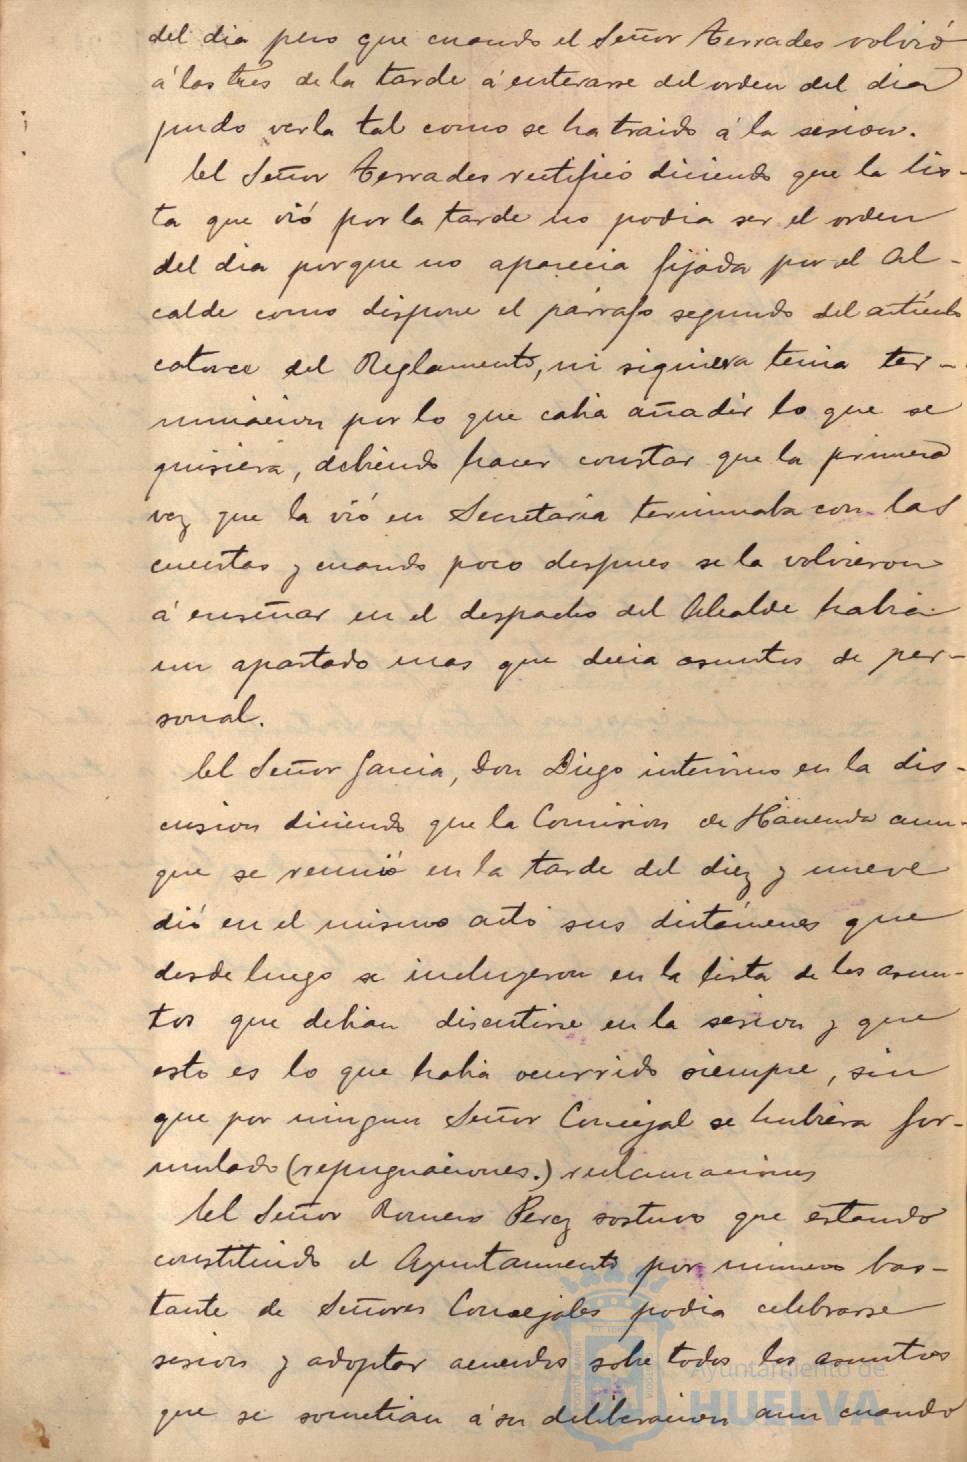 del dia pero que cuando el Señor Terrades volvió
á las tres de la tarde á enterarse del orden del dia
pudo verla tal como se ha traido á la sesion.
El Señor Terrades rectificó diciendo que la lis-
ta que vió por la tarde no podia ser el orden
del dia porque no aparecia fijada por el Al-
calde como dispone el párrafo segundo del artículo
catorce del Reglamento, ni siquiera tenia ter-
minacion por lo que cabia añadir lo que se
quisiera, debiendo hacer constar que la primera
vez que la vió en Secretaria terminaba con las
cuentas y cuando poco despues se la volvieron
á enseñar en el despacho del Alcalde habia
un apartado mas que decia asuntos de per-
sonal.
El Señor Garcia, Don Diego intervino en la dis-
cusion diciendo que la Comision de Hacienda aun-
que se reunió en la tarde del diez y nueve
dió en el mismo acto sus dictámenes que
desde luego se incluyeron en la lista de los asun-
tos que debian discutirse en la sesion y que
esto es lo que habia ocurrido siempre, sin
que por ningun Señor Concejal se hubiera for-
mulado (repugnaciones.) reclamaciones
El Señor Romero Perez sostuvo que estando
constituido el Ayuntamiento por número bas-
tante de Señores Concejales podia celebrarse
sesion y adoptar acuerdos sobre todos los asuntos
que se sometian á su deliberacion aun cuando
Ayuntamiento de
HUELVA